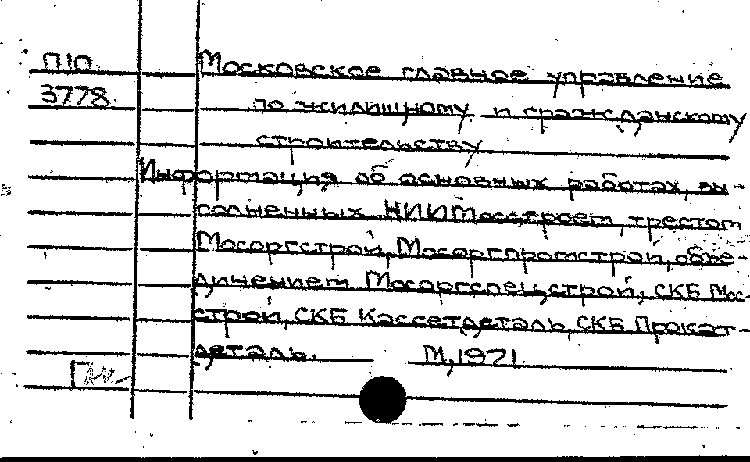 П10 Московское главное управление
3778 по жилищному и гражданскому
строительству
Информация об основных работах, вы-
полненных НИИМосстроем, трестом
Мосоргстрой, Мосоргпромстрой, объе-
динением Мосоргспецстрой, СКБ Мос-
строй, СКБ Кассетдеталь, СКБ Прокат-
деталь. М, 1971